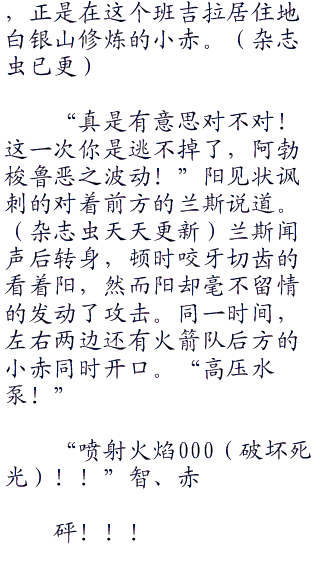 ，正是在这个班吉拉居住地
白银山修炼的小赤。（杂志
虫已更）
“真是有意思对不对！
这一次你是逃不掉了，阿勃
梭鲁恶之波动！”阳见状讽
刺的对着前方的兰斯说道。
（杂志虫天天更新）兰斯闻
声后转身，顿时咬牙切齿的
看着阳，然而阳却毫不留情
的发动了攻击。同一时间，
左右两边还有火箭队后方的
小赤同时开口。“高压水
泵！”
“喷射火焰000（破坏死
光）！！”智、赤
砰！！！